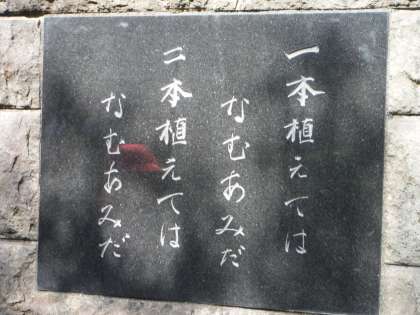 一本植えては
なむあみだ
二本植えては
なむあみだ